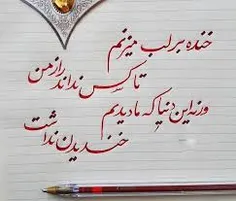 خنده بر لب میزنم
تا کس نداند راز من
ورنه این دنیا که ما دیدیم
خندیدن نداشت